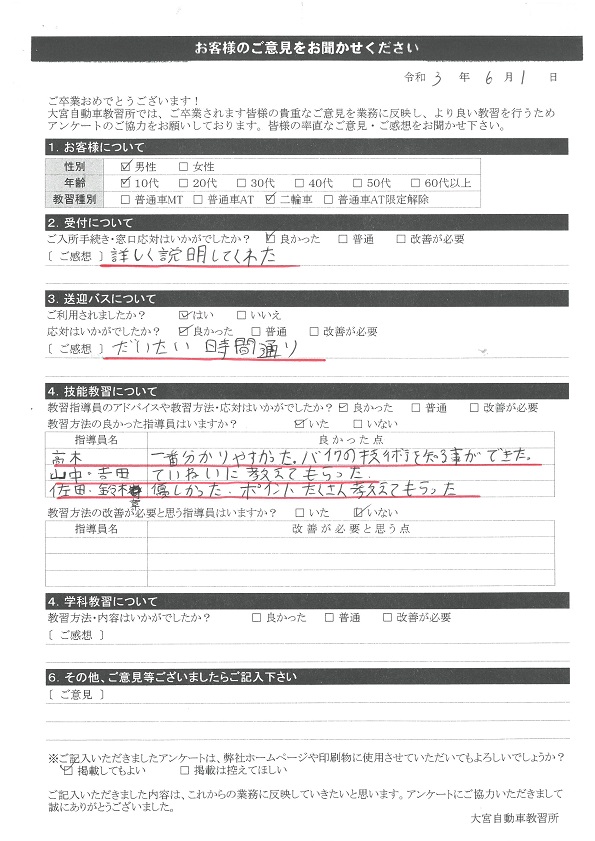 お客様のご意見をお聞かせください
令和 3 年 6 月 1 日
ご卒業おめでとうございます！
大宮自動車教習所では、ご卒業されます皆様の貴重なご意見を業務に反映し、より良い教習を行うため
アンケートのご協力をお願いしております。皆様の率直なご意見・ご感想をお聞かせ下さい。
1. お客様について
性別 ☑ 男性 □ 女性
年齢 ☑ 10代 □ 20代 □ 30代 □ 40代 □ 50代 □ 60代以上
教習種別 □ 普通車MT □ 普通車AT ☑ 二輪車 □ 普通車AT限定解除
2. 受付について
ご入所手続き・窓口応対はいかがでしたか？ ☑ 良かった □ 普通 □ 改善が必要
〔 ご感想 〕 詳しく説明してくれた
3. 送迎バスについて
ご利用されましたか？ ☑ はい □ いいえ
応対はいかがでしたか？ ☑ 良かった □ 普通 □ 改善が必要
〔 ご感想 〕 だいたい 時間通り
4. 技能教習について
教習指導員のアドバイスや教習方法・応対はいかがでしたか？ ☑ 良かった □ 普通 □ 改善が必要
教習方法の良かった指導員はいますか？ ☑ いた □ いない
指導員名 良かった点
高木 一番分かりやすかった。バイクの技術を知る事ができた。
山中・吉田 ていねいに教えてもらった.
佐田・鈴木 優しかった・ポイントたくさん教えてもらった
教習方法の改善が必要と思う指導員はいますか？ □ いた ☑ いない
指導員名 改善が必要と思う点
4. 学科教習について
教習方法・内容はいかがでしたか？ □ 良かった □ 普通 □ 改善が必要
〔 ご感想 〕
6. その他、ご意見等ございましたらご記入下さい
〔 ご意見 〕
※ご記入いただきましたアンケートは、弊社ホームページや印刷物に使用させていただいてもよろしいでしょうか？
☑ 掲載してもよい □ 掲載は控えてほしい
ご記入いただきました内容は、これからの業務に反映していきたいと思います。アンケートにご協力いただきまして
誠にありがとうございました。
大宮自動車教習所